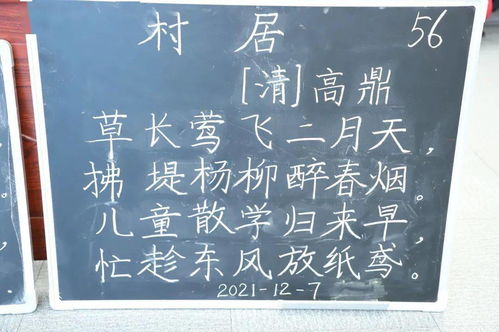 村居
56
[清]高鼎
草长莺飞二月天，
拂堤杨柳醉春烟。
儿童散学归来早，
忙趁东风放纸鸢。
2021-12-7